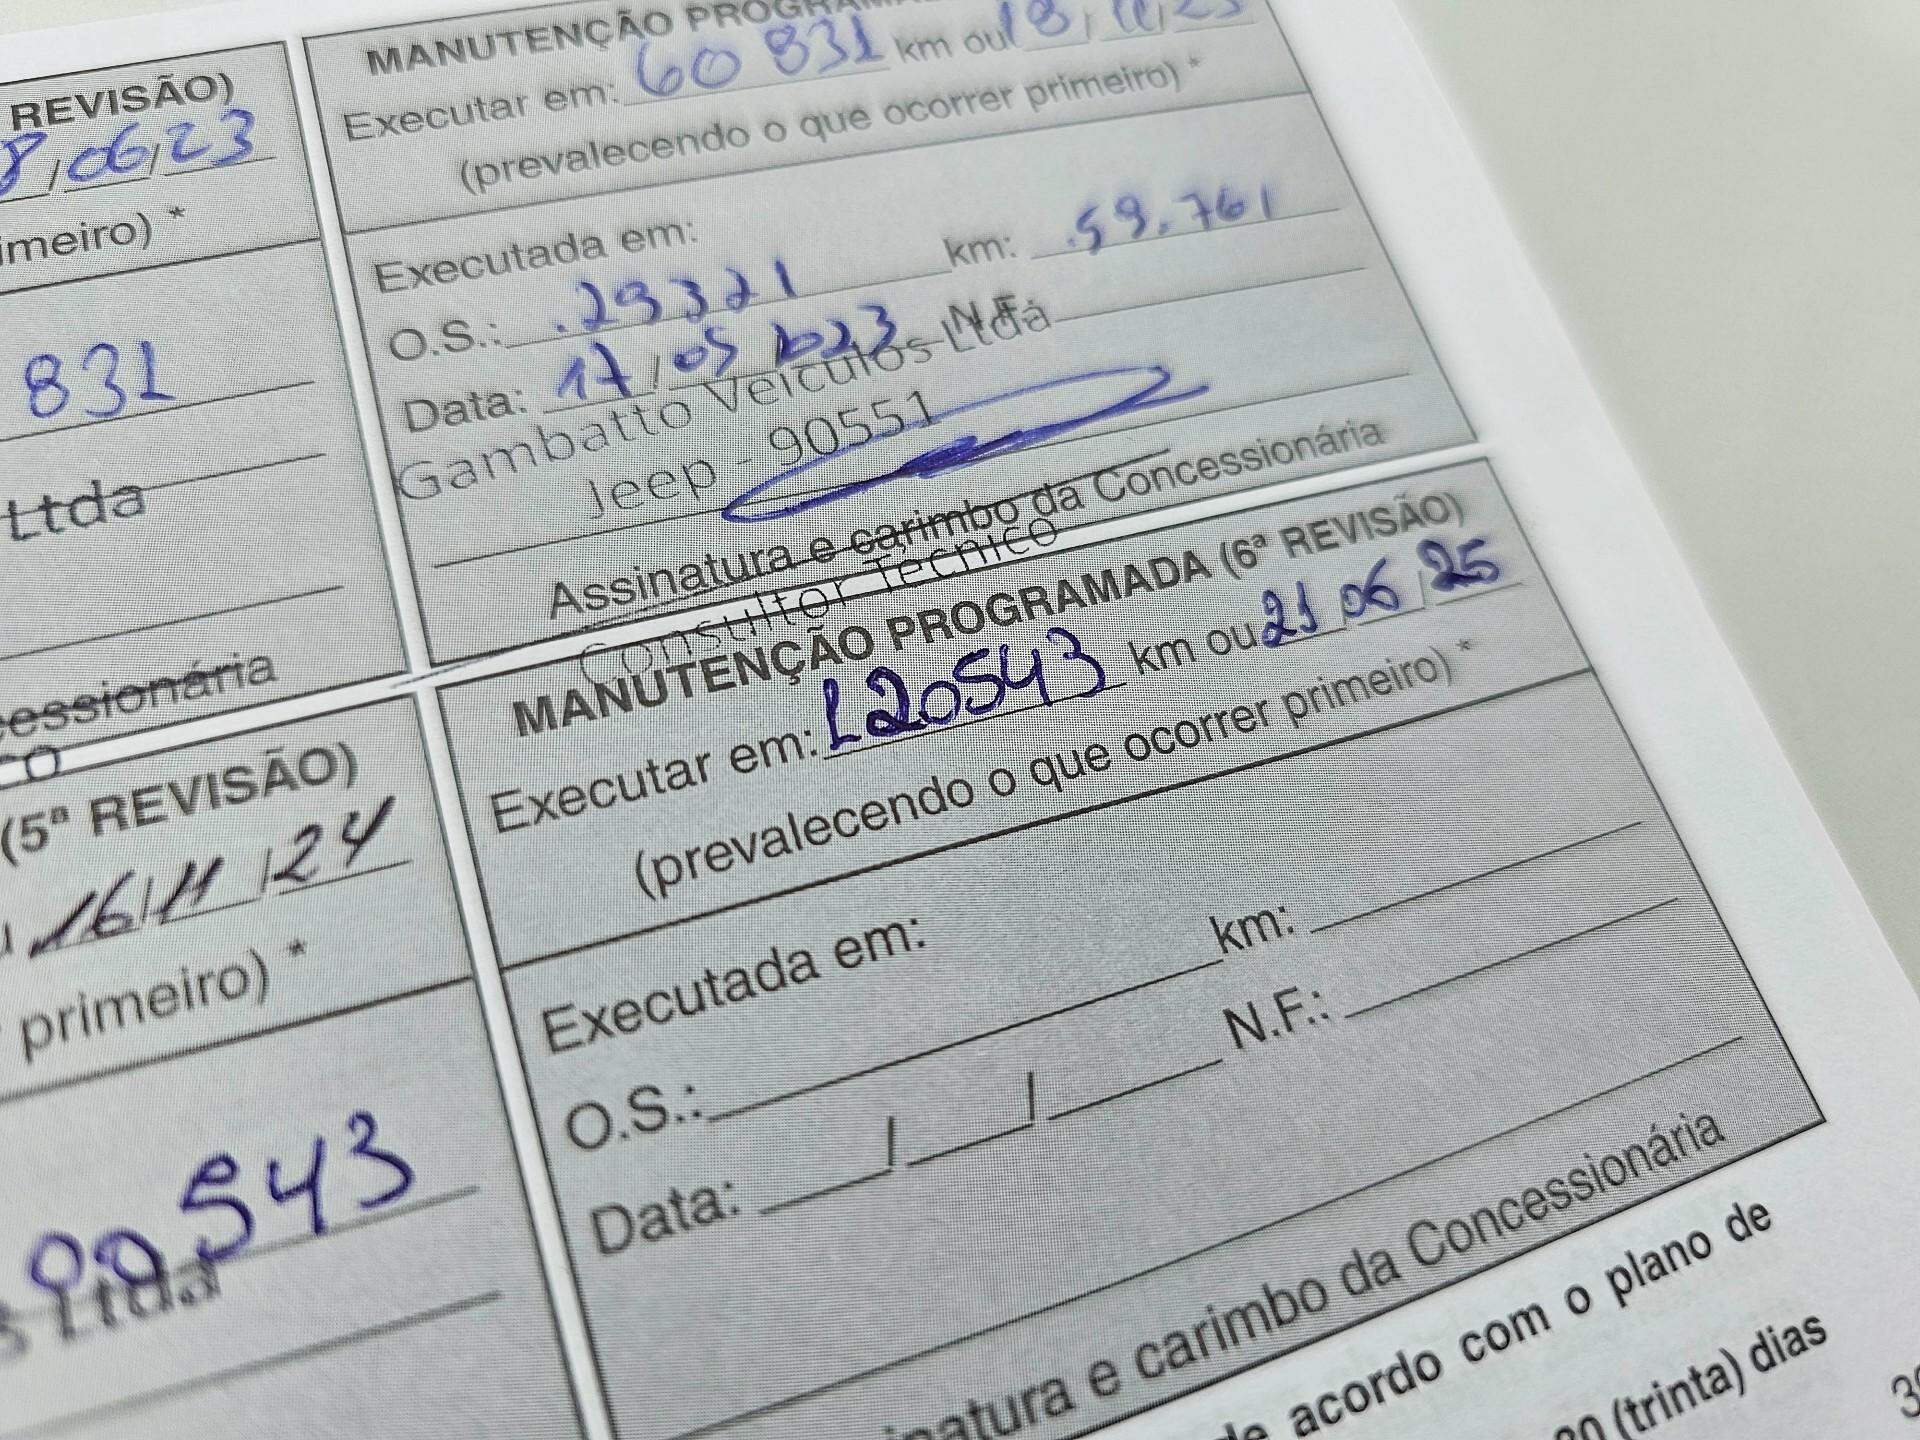 REVISÃO)
8/06/23
imeiro) *
831
Ltda
essionária
(5ª REVISÃO)
16/11/24
primeiro) *
90543
Ltda
MANUTENÇÃO
Executar em: 60 831 km ou 18/11/23
(prevalecendo o que ocorrer primeiro) *
Executada em:
km: .59.761
O.S.: .29321
Data: 17/05/2023
Gambatto Veículos Ltda
Jeep - 90551
Assinatura e carimbo da Concessionária
Consultor Técnico
MANUTENÇÃO PROGRAMADA (6ª REVISÃO)
Executar em: 120543 km ou 21/06/25
(prevalecendo o que ocorrer primeiro) *
Executada em:
km:
O.S.:
N.F.:
Data: / /
natura e carimbo da Concessionária
de acordo com o plano de
(trinta) dias